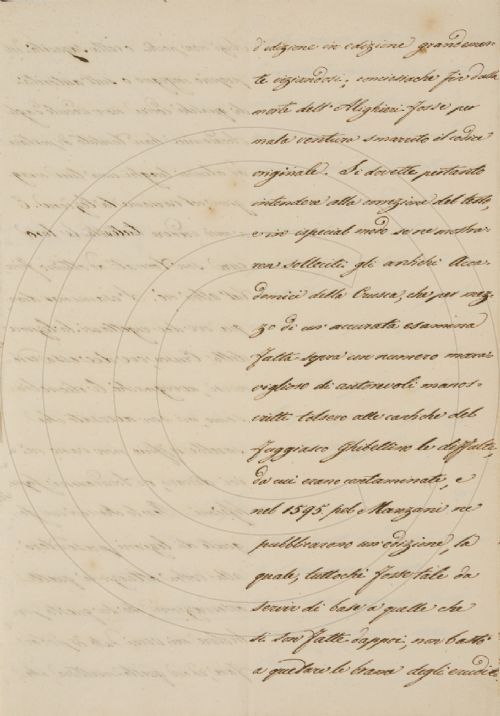 d'edizione in edizione grandemen-
te viziandosi; conciossiachè fin dalla
morte dell'Alighieri fosse per
mala ventura smarrito il codice
originale. Si dovette pertanto
intendere alla correzione del testo,
e in ispecial modo se ne mostra-
rea solleciti gli antichi Acca-
demici della Crusca, che per mez-
zo di un'accurata esamina
fatta sopra un numero mara-
viglioso di autorevoli manos-
critti tolsero alle cantiche del
Fuggiasco Ghibellino le diffalte,
da cui erano contaminate, e
nel 1595 pel Manzani ne
pubblicarono un'edizione, la
quale, tuttochè fosse tale da
servir di base a quelle che
si son fatte dappoi, non bastò
a quetare le brame degli erudit